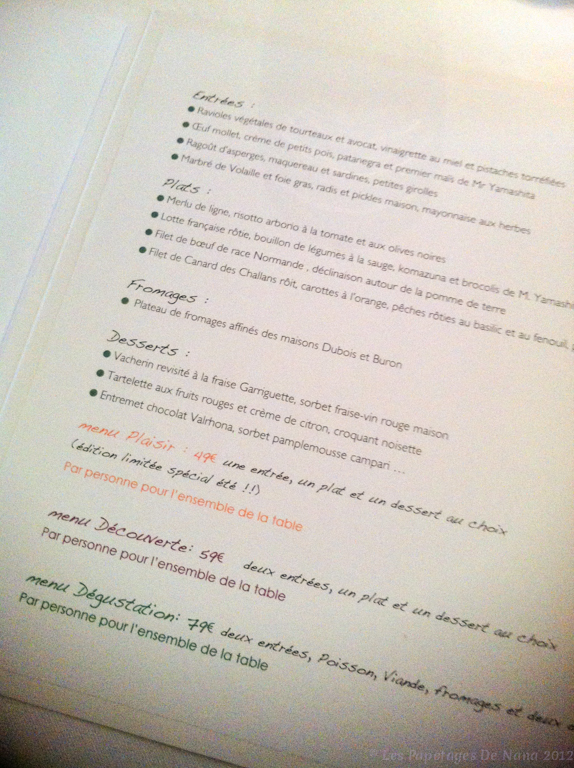 Entrées :
● Ravioles végétales de tourteaux et avocat, vinaigrette au miel et pistaches torréfiées
● Œuf mollet, crème de petits pois, patanegra et premier maïs de Mr Yamashita
● Ragoût d'asperges, maquereau et sardines, petites girolles
● Marbré de Volaille et foie gras, radis et pickles maison, mayonnaise aux herbes
Plats :
● Merlu de ligne, risotto arborio à la tomate et aux olives noires
● Lotte française rôtie, bouillon de légumes à la sauge, komazuna et brocolis de M. Yamashi
● Filet de bœuf de race Normande , déclinaison autour de la pomme de terre
● Filet de Canard des Challans rôit, carottes à l'orange, pêches rôties au basilic et au fenouil,
Fromages :
● Plateau de fromages affinés des maisons Dubois et Buron
Desserts :
● Vacherin revisité à la fraise Garriguette, sorbet fraise-vin rouge maison
● Tartelette aux fruits rouges et crème de citron, croquant noisette
● Entremet chocolat Valrhona, sorbet pamplemousse campari ...
menu Plaisir : 49€ une entrée, un plat et un dessert au choix
(édition limitée spécial été !!)
Par personne pour l'ensemble de la table
menu Découverte: 59€ deux entrées, un plat et un dessert au choix
Par personne pour l'ensemble de la table
menu Dégustation: 79€ deux entrées, Poisson, Viande, fromages et deux
Par personne pour l'ensemble de la table
© Les Papotages De Nana 2012